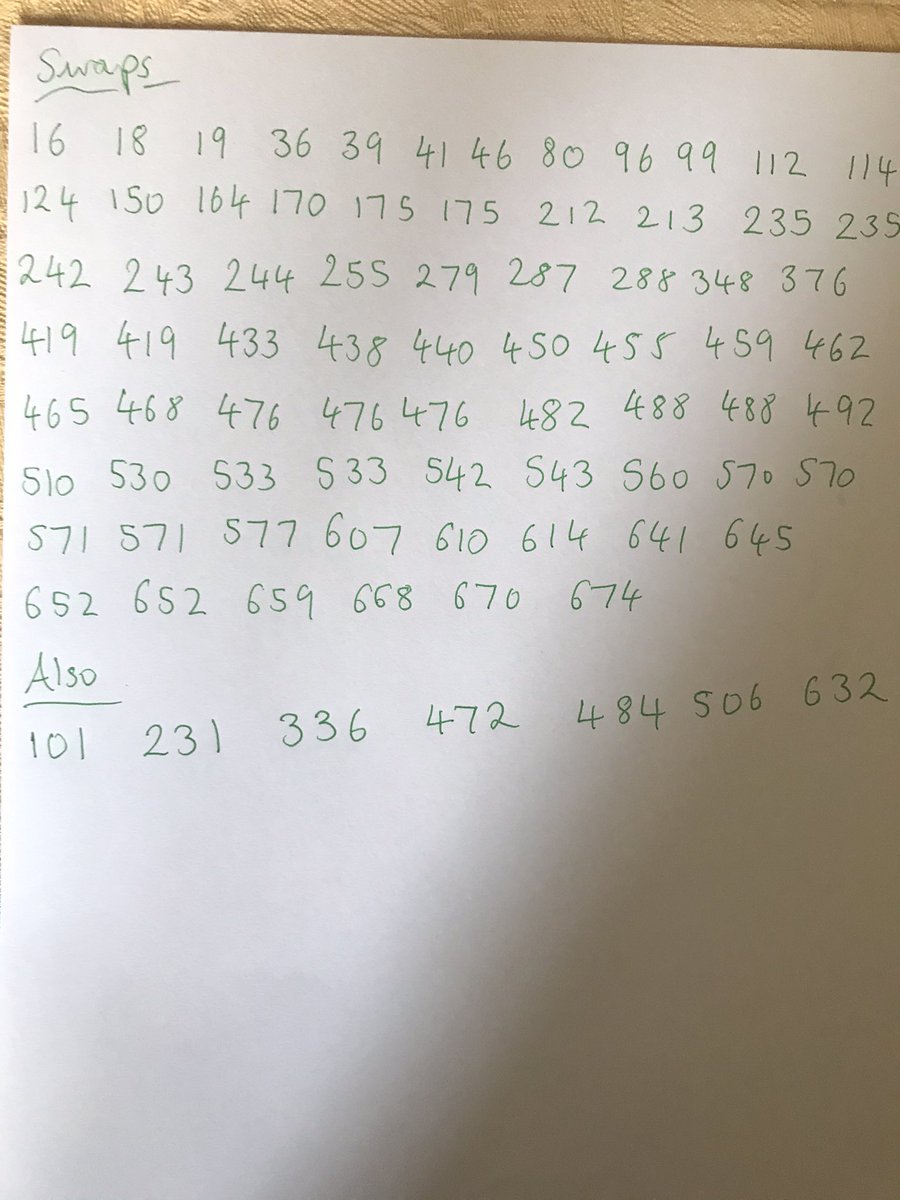 Swaps
16 18 19 36 39 41 46 80 96 99 112 114
124 150 164 170 175 175 212 213 235 235
242 243 244 255 279 287 288 348 376
419 419 433 438 440 450 455 459 462
465 468 476 476 476 482 488 488 492
510 530 533 533 542 543 560 570 570
571 571 577 607 610 614 641 645
652 652 659 668 670 674
Also
101 231 336 472 484 506 632